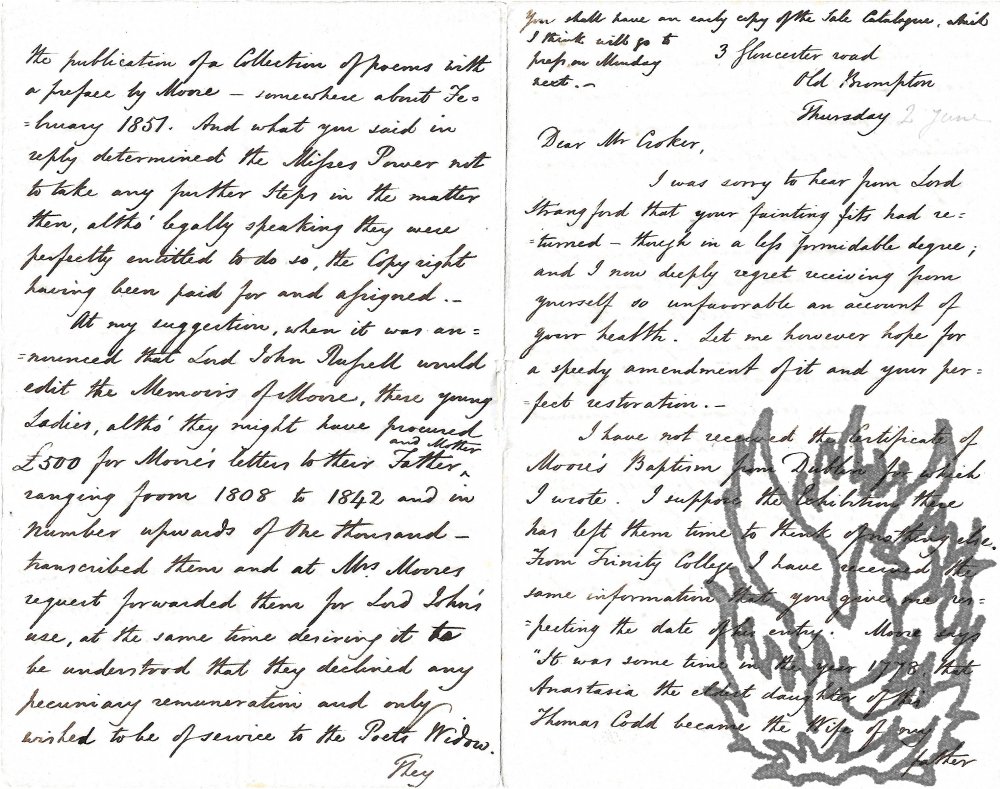 the publication of a Collection of poems with
a preface by Moore – somewhere about Fe=
=bruary 1851. And what you said in
reply determined the Misses Power not
to take any further Steps in the matter
then, altho' legally speaking they were
perfectly entitled to do so, the Copy right
having been paid for and assigned. –
At my suggestion, when it was an=
=nounced that Lord John Russell would
edit the Memoirs of Moore, these young
Ladies, altho' they might have procured
and Mother
£500 for Moore's letters to their Father ^
ranging from 1808 to 1842 and in
number upwards of One thousand –
transcribed them and at Mrs Moore's
request forwarded them for Lord John's
use, at the same time desiring it to
be understood that they declined any
pecuniary remuneration and only
wished to be of service to the Poet's Widow.
They
You shall have an early copy of the Sale Catalogue, which
I think will go to
press on Monday
next. –
3 Gloucester road
Old Brompton
Thursday 2 June
Dear Mr Croker,
I was sorry to hear from Lord
Strangford that your fainting fits had re=
=turned – though in a less formidable degree;
and I now deeply regret receiving from
yourself so unfavorable an account of
your health. Let me however hope for
a speedy amendment of it and your per=
=fect restoration. –
I have not received the Certificate of
Moore's Baptism from Dublin for which
I wrote. I suppose the Exhibition there
has left them time to think of nothing else.
From Trinity College I have received the
same information that you give me res=
=pecting the date of his entry. Moore says
"It was some time in the year 1778 that
Anastasia the eldest daughter of the
Thomas Codd became the Wife of my
father